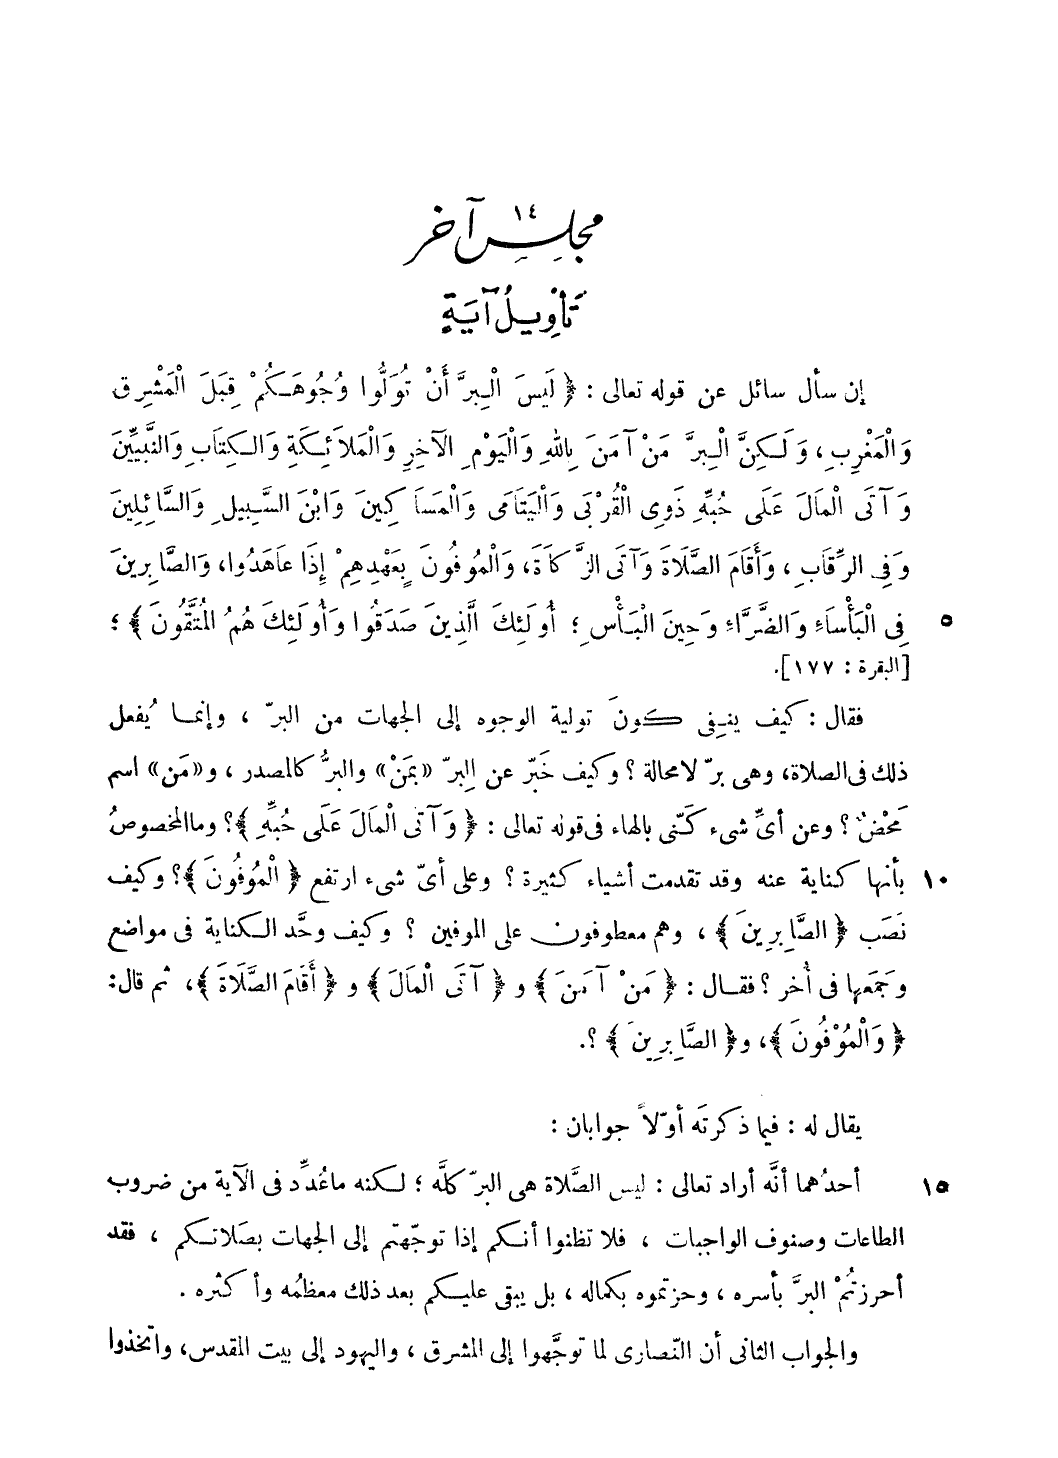 ١٤
مجلس آخر
تَأْوِيلُ آيَةٍ
إن سأل سائل عن قوله تعالى : ﴿ لَيسَ الْبِرَّ أَنْ تُوَلُّوا وُجُوهَكُمْ قِبَلَ الْمَشْرِقِ
وَالْمَغْرِبِ، وَلَكِنَّ الْبِرَّ مَنْ آمَنَ بِاللهِ وَالْيَوْمِ الآخِرِ وَالْمَلاَئِكَةِ وَالْكِتَابِ وَالنَّبِيِّينَ
وَآتَى الْمَالَ عَلَى حُبِّهِ ذَوِى الْقُرْبَى وَالْيَتَامَى وَالْمَسَاكِينَ وَابْنَ السَّبِيلِ وَالسَّائِلِينَ
وَفِى الرِّقَابِ، وَأَقَامَ الصَّلَاةَ وَآتَى الزَّكَاةَ، وَالْمُوفُونَ بِعَهْدِهِمْ إِذَا عَاهَدُوا، وَالصَّابِرِينَ
فِى الْبَأْسَاءِ وَالضَّرَّاءِ وَحِينَ الْبَأْسِ؛ أُولَئِكَ الَّذِينَ صَدَقُوا وَأُولَئِكَ هُمُ الْمُتَّقُونَ ﴾؛ ٥
[البقرة : ١٧٧].
فقال : كيف ينفِى كونَ تولية الوجوه إلى الجهات من البرّ ، وإنما يُفعل
ذلك فى الصلاة، وهى برّ لامحالة ؟ وكيف خَبّر عن البِرّ «بمَنْ» والبرُّ كالمصدر ، و«مَن» اسم
مَحْضٌ ؟ وعن أىِّ شىء كَنّى بالهاء فى قوله تعالى : ﴿ وَآتَى الْمَالَ عَلَى حُبِّهِ ﴾؟ وما المخصوصُ
بأنها كناية عنه وقد تقدمت أشياء كثيرة ؟ وعلى أىّ شىء ارتفع ﴿ الْمُوفُونَ ﴾؟ وكيف ١٠
نَصَب ﴿ الصَّابِرِينَ ﴾ ، وهم معطوفون على الموفين ؟ وكيف وحَّد الكناية فى مواضع
وجَمَعها فى أُخر ؟ فقال : ﴿ مَنْ آمَنَ ﴾ و ﴿ آتَى الْمَالَ ﴾ و ﴿ أَقَامَ الصَّلَاةَ ﴾، ثم قال:
﴿ وَالْمُوْفُونَ ﴾، و﴿ الصَّابِرِينَ ﴾ ؟.
يقال له : فيما ذكرتَه أوّلاً جوابان :
أحدُهما أنَّه أراد تعالى : ليس الصَّلاة هى البرّ كلَّه ؛ لكنه ماعُدِّد فى الآية من ضروب ١٥
الطاعات وصنوف الواجبات ، فلا تظنوا أنكم إذا توجّهتم إلى الجهات بصَلاتكم ، فقد
أحرزتُمْ البرَّ بأسره ، وحزتموه بكماله ، بل يبقى عليكم بعد ذلك معظمُه وأكثره .
والجواب الثانى أن النّصارى لما توجَّهوا إلى المشرق ، واليهود إلى بيت المقدس، واتّخذوا